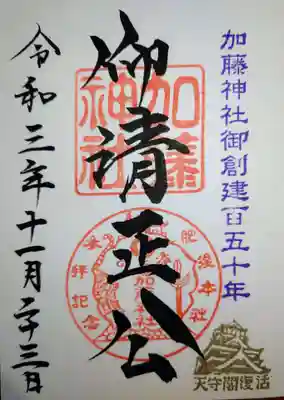 加藤神社御創建百五十年
仰清正公
加藤神社
肥後本社
加藤神社
参拝記念
令和三年十一月二十三日
天守閣復活